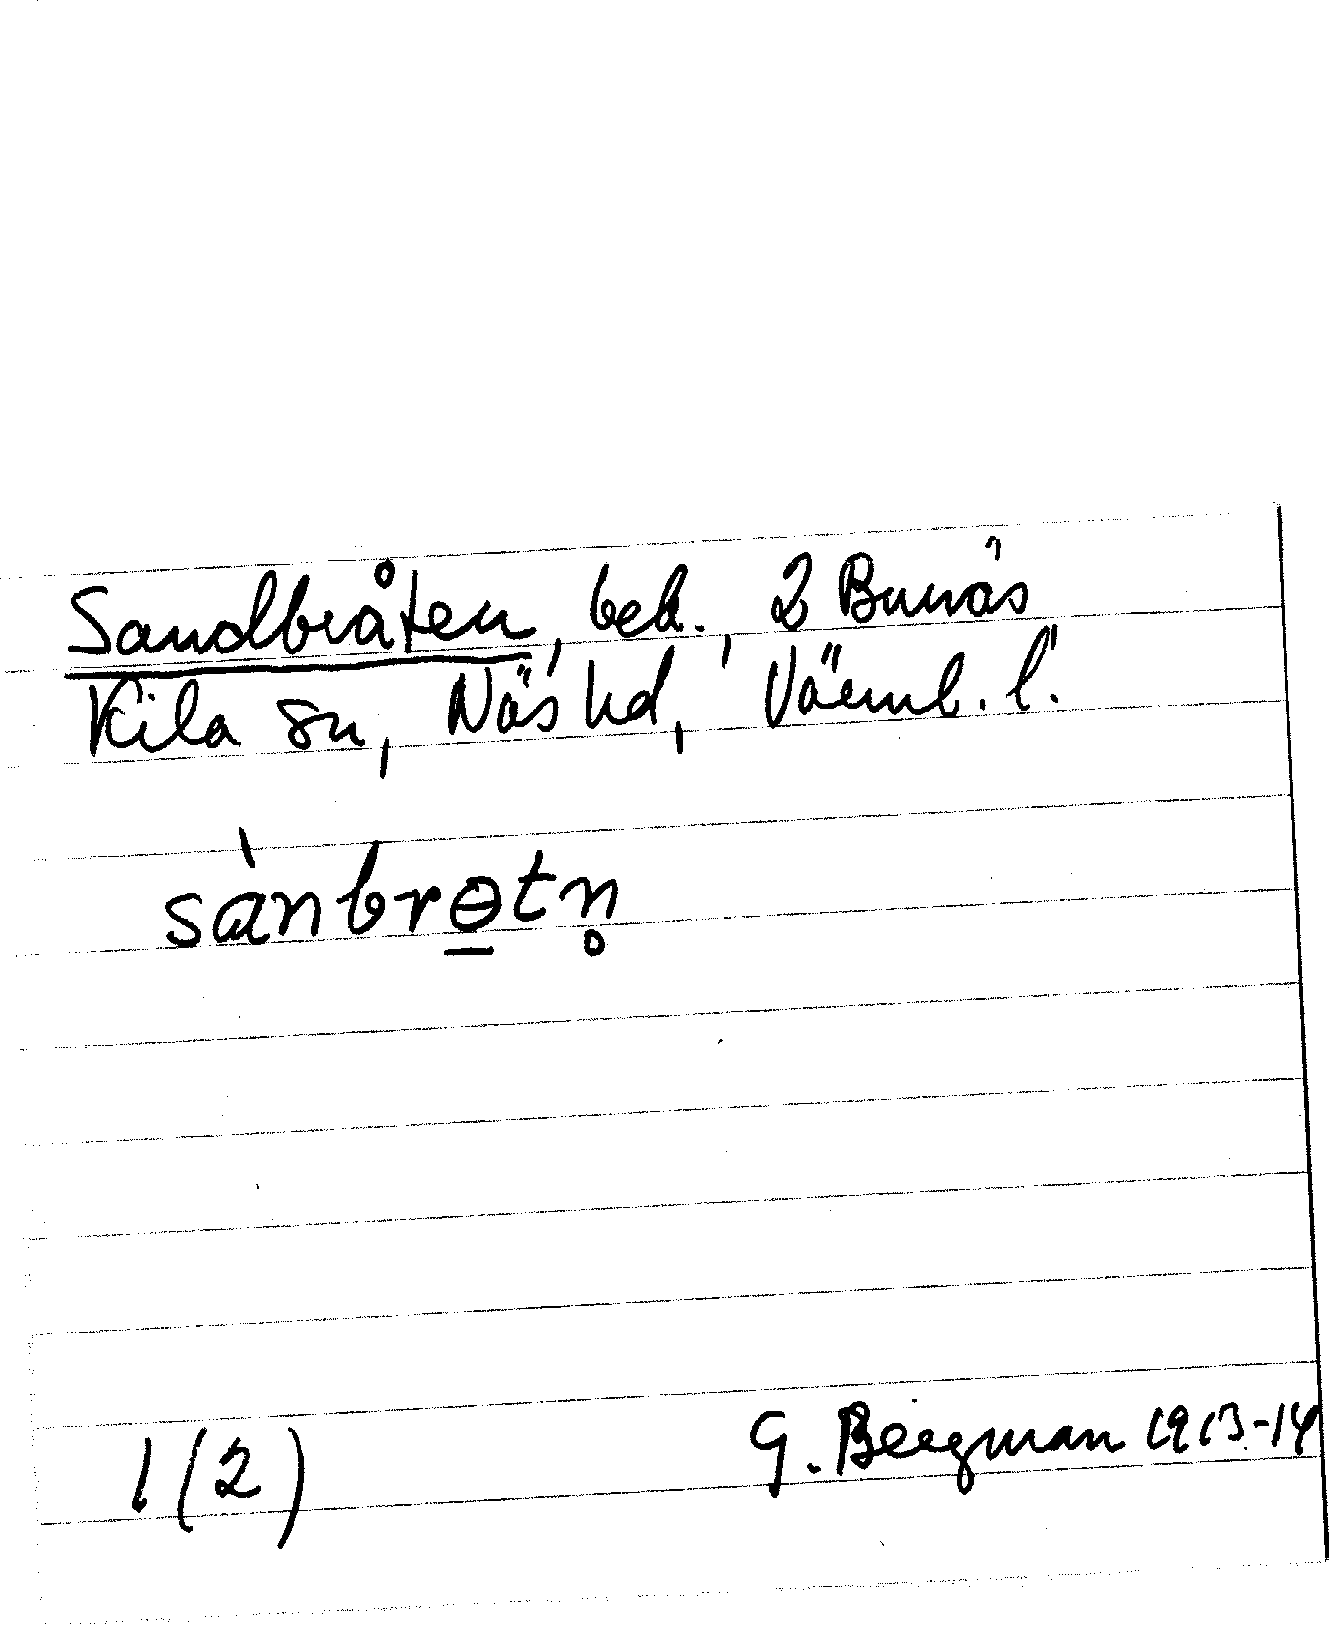 Sandbråten, bek., 2 Bunäs
Kila sn, Näs hd, Värml. l.
sànbrɵ̲tn̥
1 (2)
G. Bergman 1913-14